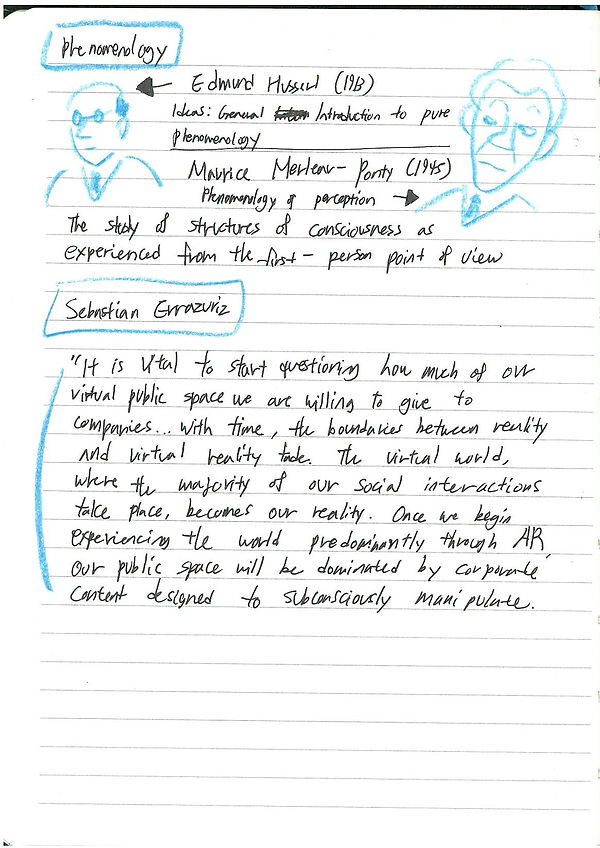 Phenomenology
Edmund Husserl (1913)
Ideas: General Introduction to pure
phenomenology
Maurice Merleau-Ponty (1945)
Phenomenology of perception
The study of structures of consciousness as
experienced from the first-person point of view
Sebastian Errazuriz
"It is vital to start questioning how much of our
virtual public space we are willing to give to
companies... with time, the boundaries between reality
and virtual reality fade. The virtual world,
where the majority of our social interactions
take place, becomes our reality. Once we begin
experiencing the world predominantly through AR,
our public space will be dominated by corporate
content designed to subconsciously manipulate.